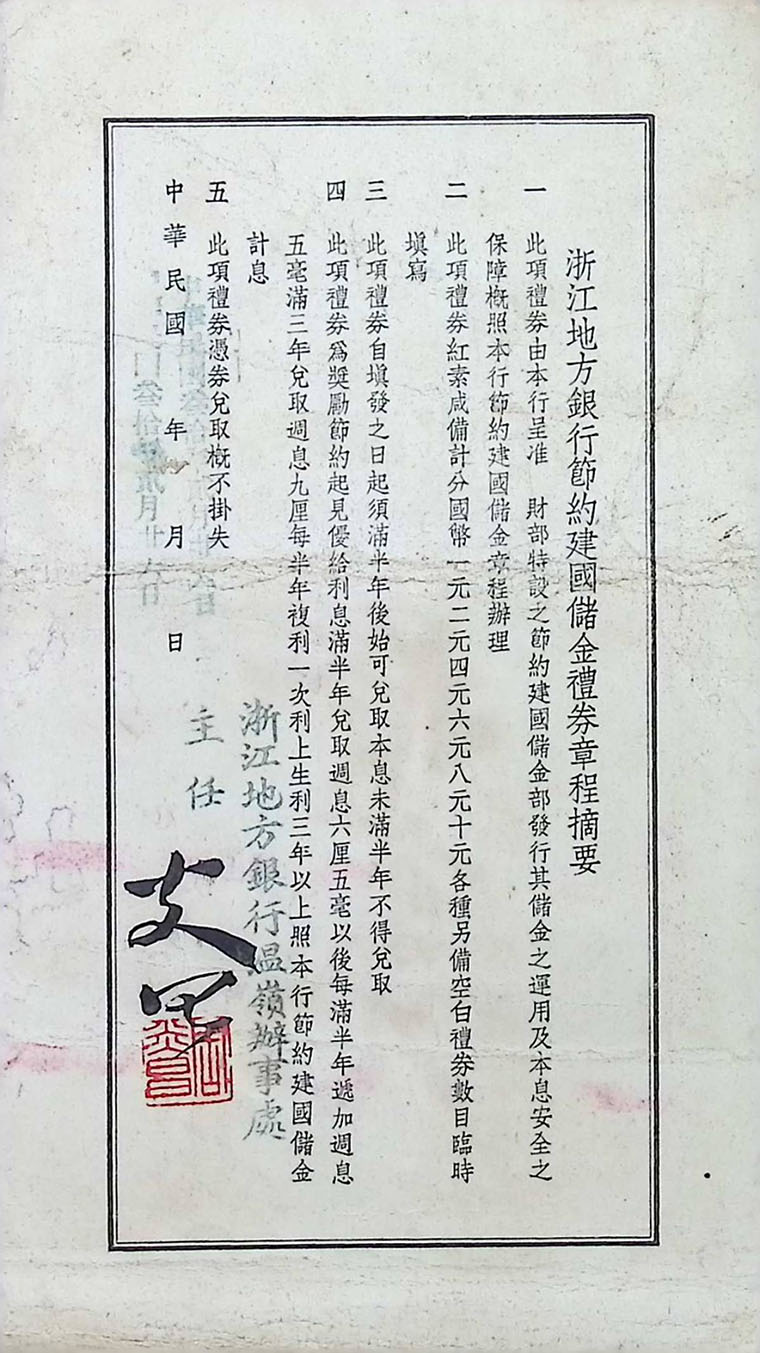 浙江地方銀行節約建國儲金禮券章程摘要
一 此項禮券由本行呈准 財部特設之節約建國儲金部發行其儲金之運用及本息安全之
保障概照本行節約建國儲金章程辦理
二 此項禮券紅素咸備計分國幣一元二元四元六元八元十元各種另備空白禮券數目臨時
塡寫
三 此項禮券自塡發之日起須滿半年後始可兌取本息未滿半年不得兌取
四 此項禮券爲獎勵節約起見優給利息滿半年兌取週息六厘五毫以後每滿半年遞加週息
五毫滿三年兌取週息九厘每半年複利一次利上生利三年以上照本行節約建國儲金
計息
五 此項禮券憑券兌取概不掛失
中華民國 年 月 日
叁拾 貳月廿六日
浙江地方銀行温嶺辦事處
主任